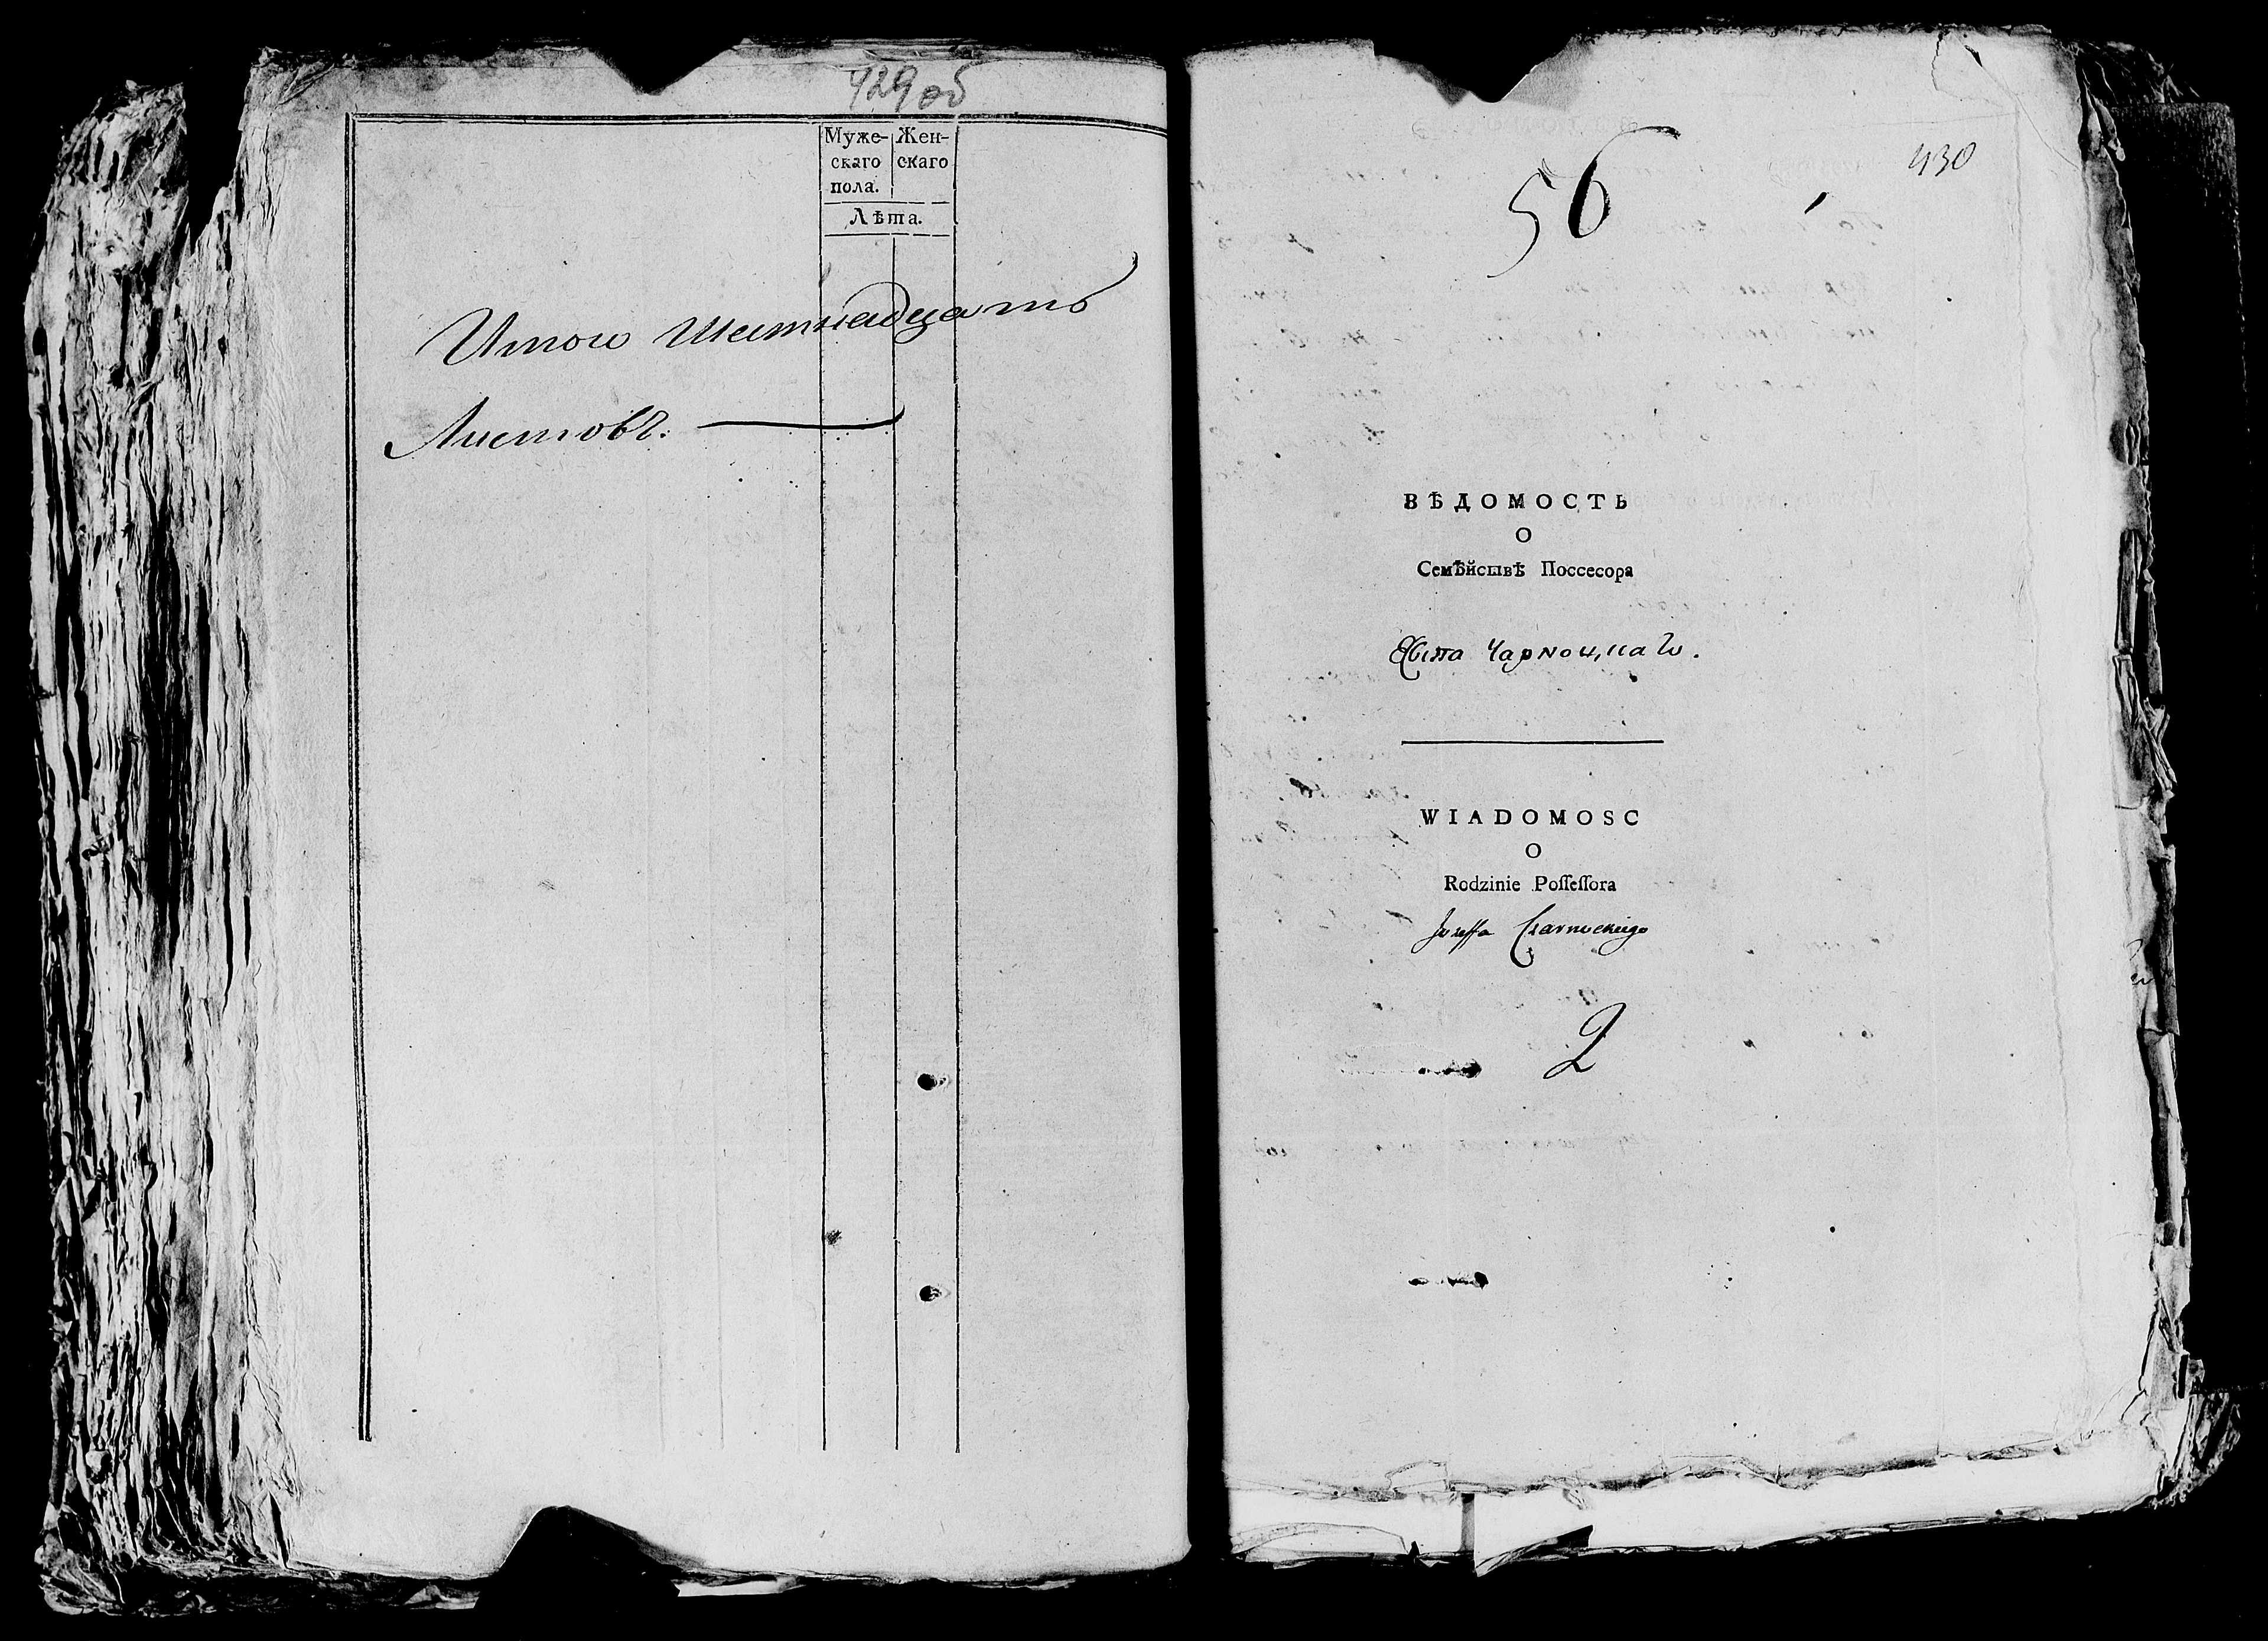 429 об
Муже- Жен-
скаго скаго
пола.
Лѣта.
Итого Шестнадцать
Листовъ.
430
56
ВѢДОМОСТЬ
О
Семѣйствѣ Поссесора
Чарноцкаго.
WIADOMOSC
O
Rodzinie Poſſeſſora
Jozeffa Czarnockiego
2